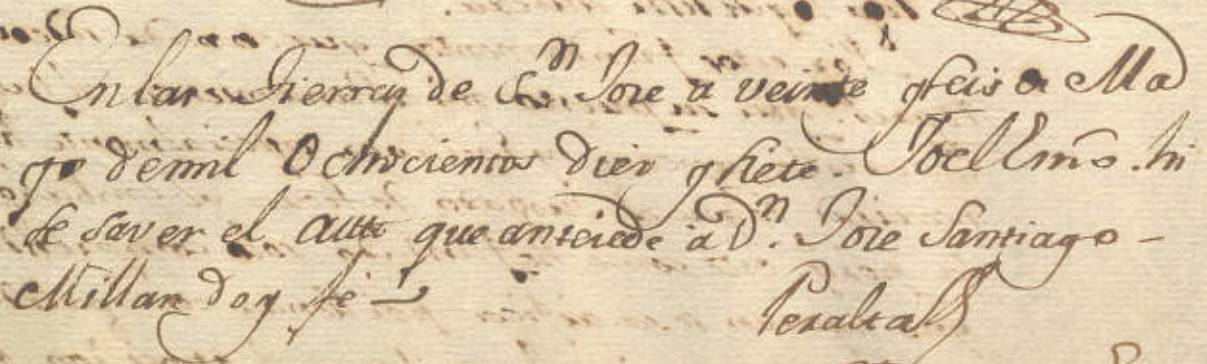 En las Tierras de Sn. Jose a veinte y seis de Ma
yo de mil Ochocientos diez y siete. Yo el Essno. hi
se saver el auto que antecede à Dn. Jose Santiago –
Millan doy fé –
Peralta